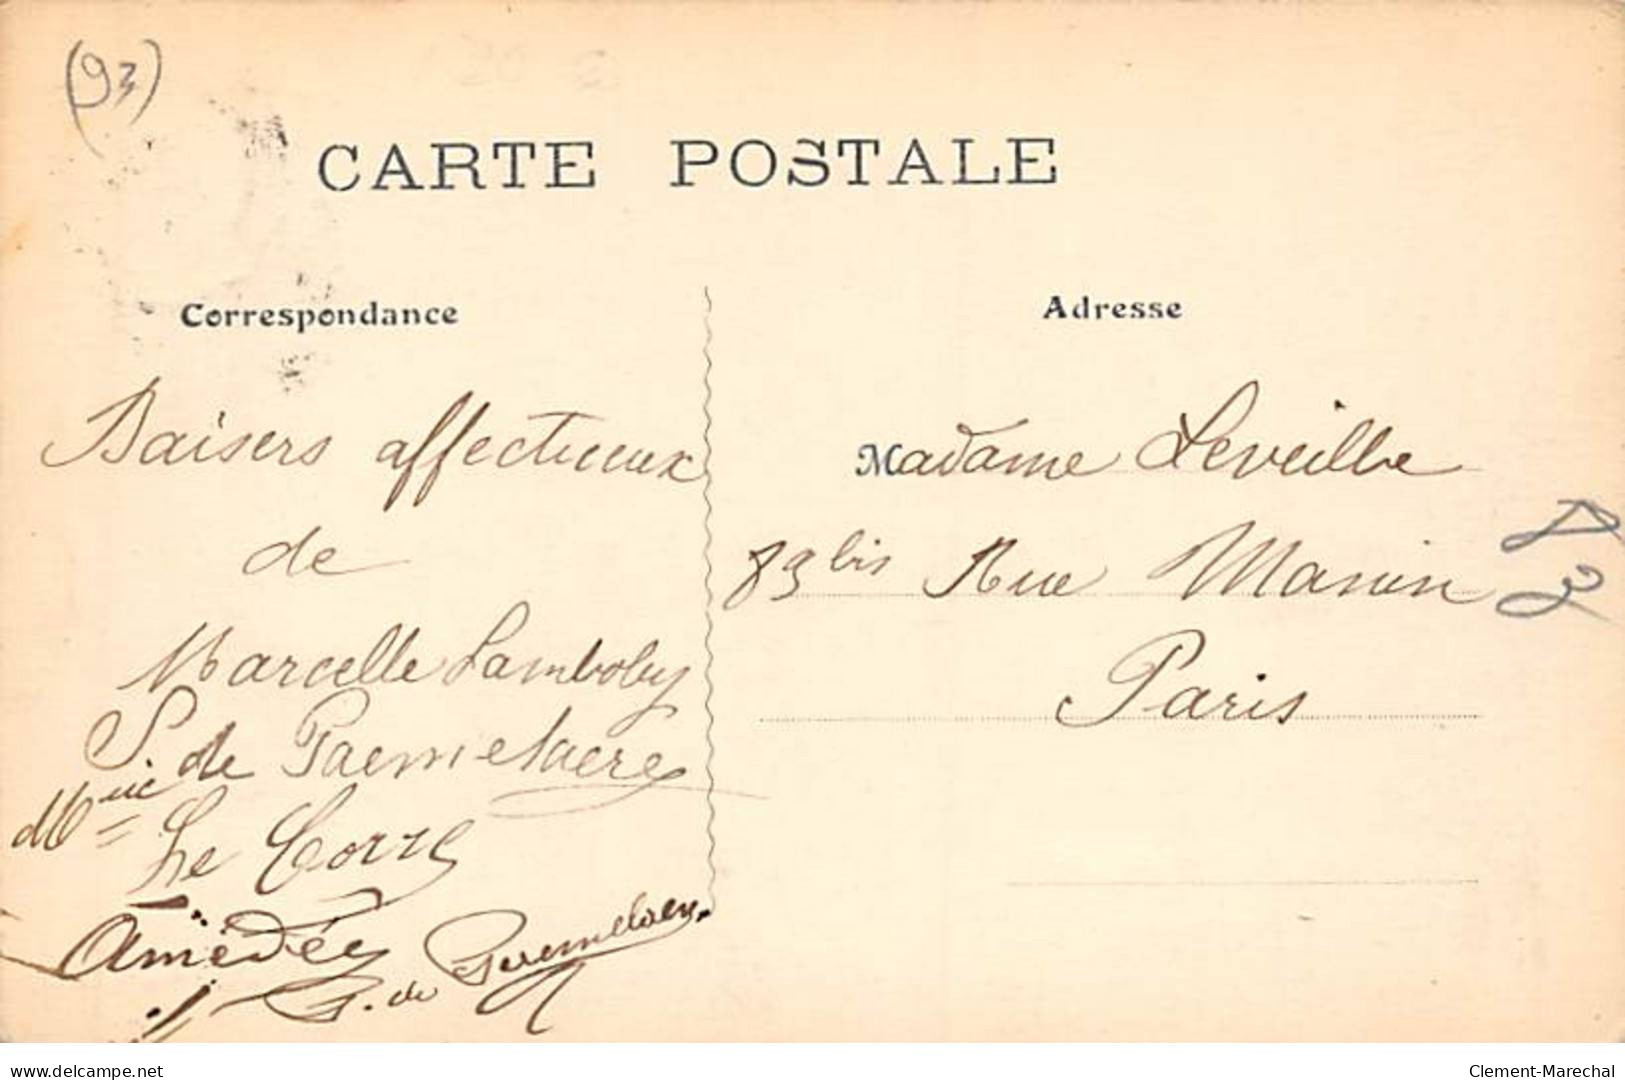 (93)
CARTE POSTALE
Correspondance
Adresse
Baisers affectueux
de
Marcelle Lamboley
S. de Paemelaere
Mme Le Corre
Amédée
G. de Paemelaere
Madame Leveille
83 bis Rue Manin
Paris
delcampe.net
Clement-Marechal